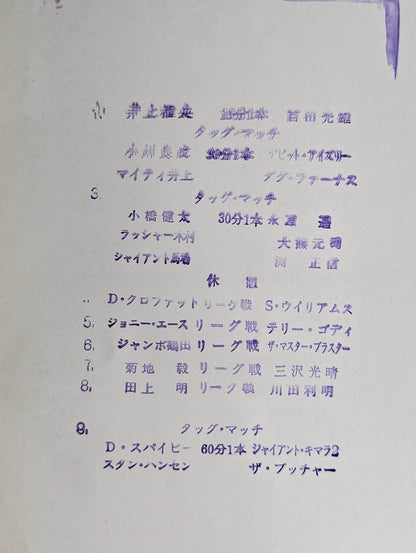 井上雅央 20分1本 百田光雄
タッグ・マッチ
小川良成 30分1本 デビット・アイズリー
マイティ井上 ダグ・ファーナス
3. タッグ・マッチ
小橋健太 30分1本 永源 遥
ラッシャー木村 大熊元司
ジャイアント馬場 渕 正信
休 憩
D・クロファット リーグ戦 S・ウイリアムス
5. ジョニー・エース リーグ戦 テリー・ゴディ
6. ジャンボ鶴田 リーグ戦 ザ・マスター・ブラスター
7. 菊地 毅 リーグ戦 三沢光晴
8. 田上 明 リーグ戦 川田利明
9. タッグ・マッチ
D・スパイビー 60分1本 ジャイアント・キマラ2
スタン・ハンセン ザ・ブッチャー